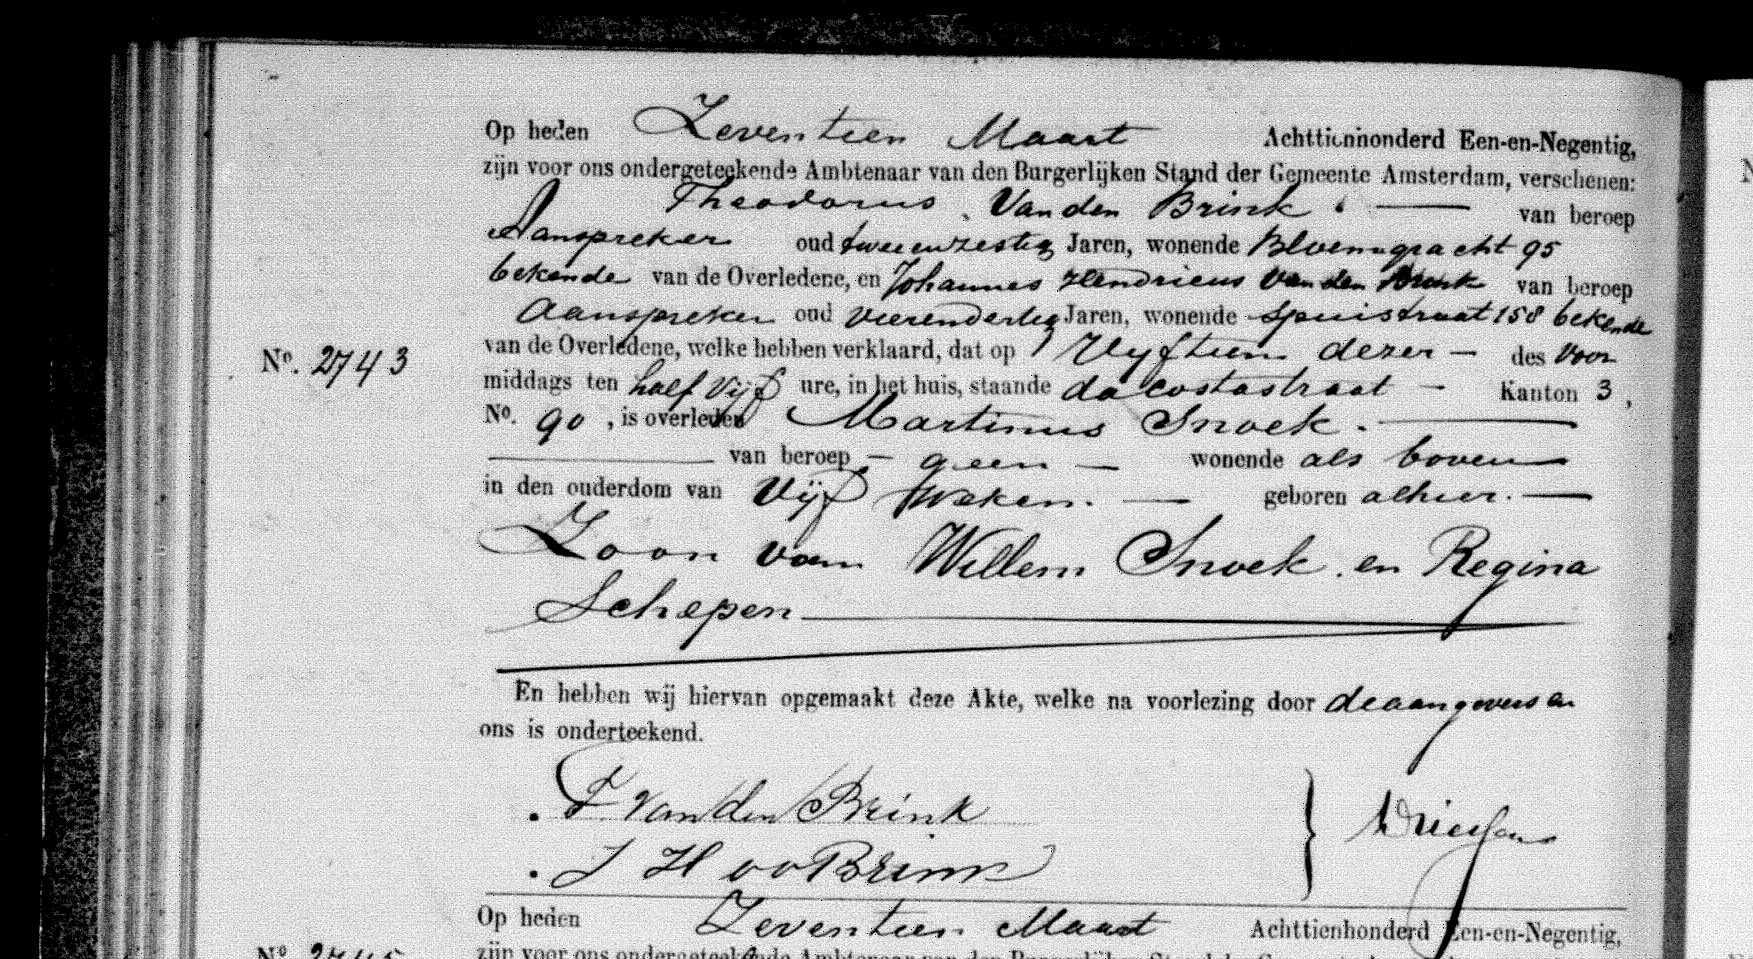 Op heden Zeventien Maart Achttienhonderd Een-en-Negentig,
zijn voor ons ondergeteekende Ambtenaar van den Burgerlijken Stand der Gemeente Amsterdam, verschenen:
Theodorus Van den Brink van beroep
Aanspreker oud tweeenzestig Jaren, wonende Bloemgracht 95
bekende van de Overledene, en Johannes Hendricus Van den Brink van beroep
Aanspreker oud vierendertig Jaren, wonende Spuistraat 158 bekende
No. 2743
van de Overledene, welke hebben verklaard, dat op Vyftien dezer des voor
middags ten half Vijf ure, in het huis, staande da Costastraat Kanton 3,
No. 90, is overleden Martinus Snoek.
van beroep geen wonende als boven
in den ouderdom van Vijf Weken. geboren alhier.
Zoon van Willem Snoek en Regina
Schepen
En hebben wij hiervan opgemaakt deze Akte, welke na voorlezing door de aangevers en
ons is onderteekend.
T Van den Brink
J H vd Brink
Op heden Zeventien Maart Achttienhonderd Een-en-Negentig,
No. 2745
zijn voor ons ondergeteekende Ambtenaar van den Burgerlijken Stand der Gemeente